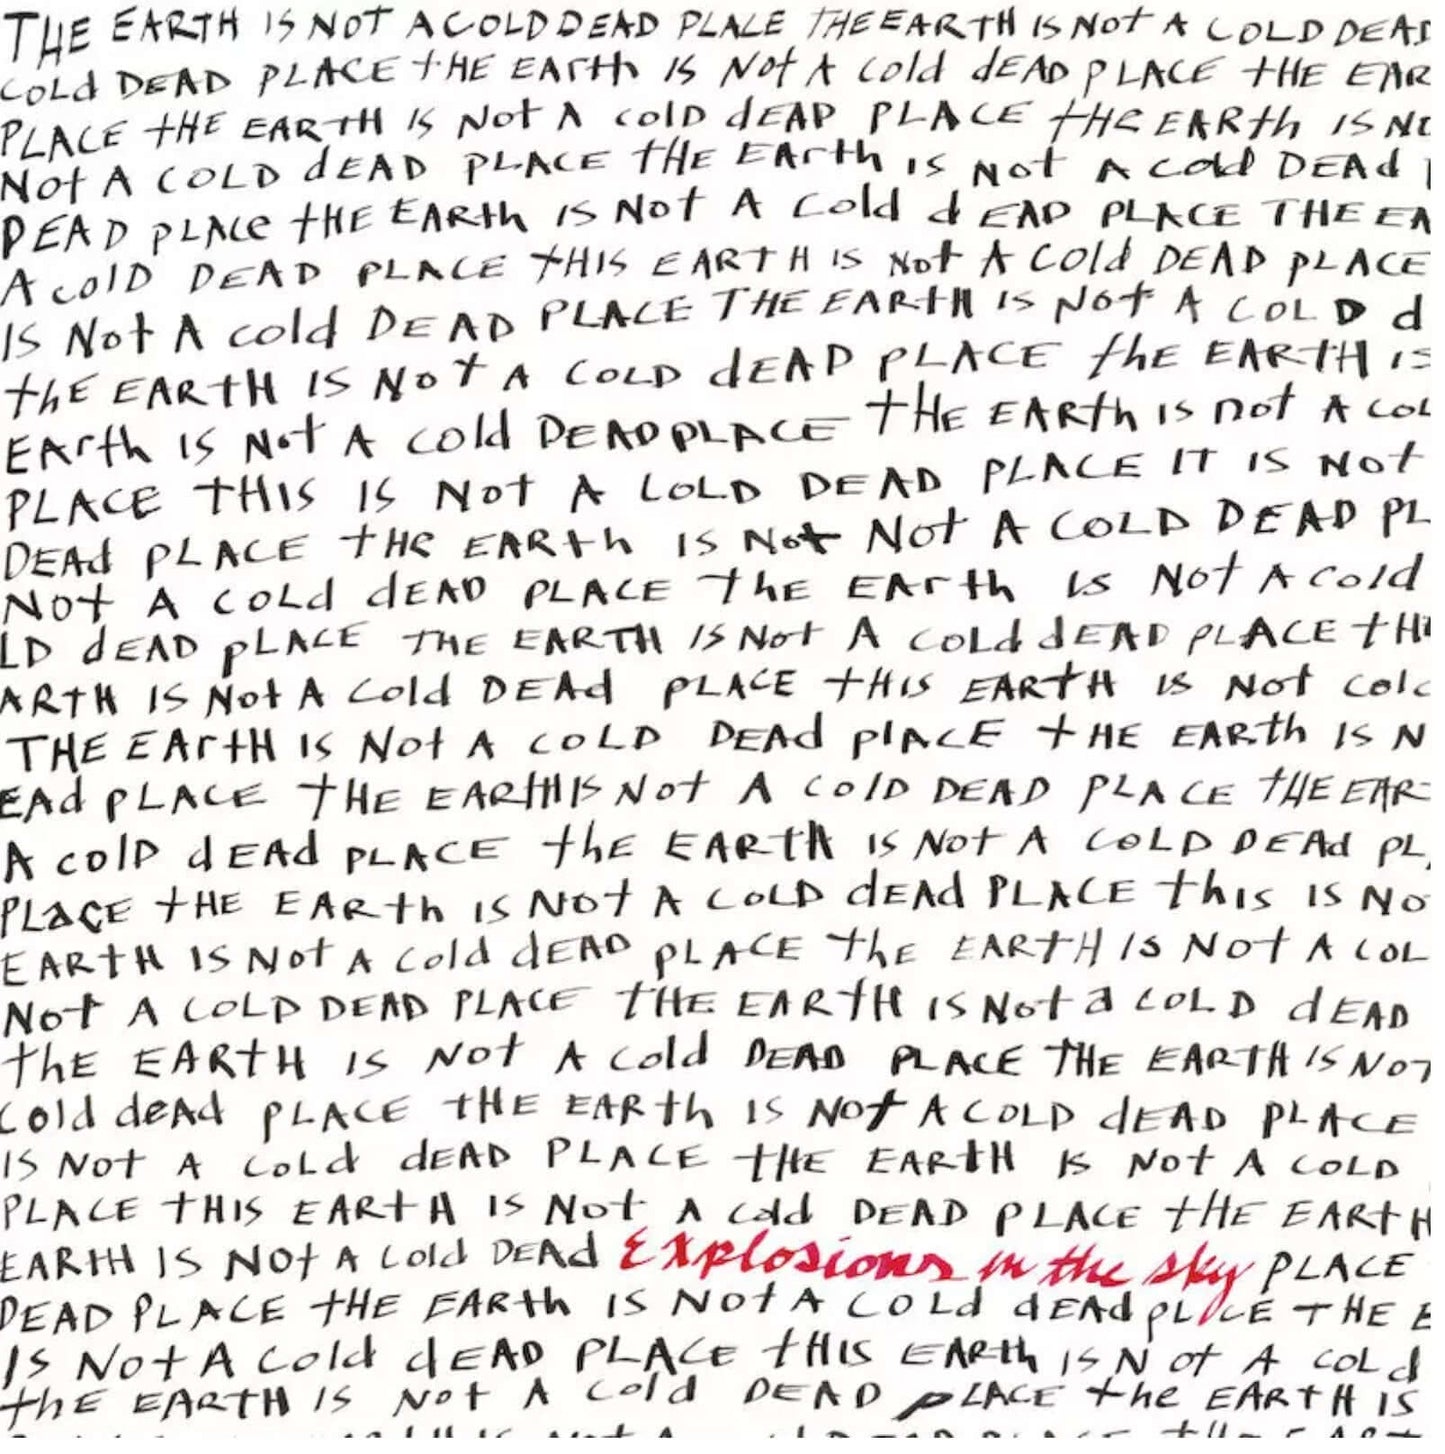 THE EARTH IS NOT A COLD DEAD PLACE THE EARTH IS NOT A COLD DEAD
COLD DEAD PLACE THE EARTH IS NOT A COLD DEAD PLACE THE EAR
PLACE THE EARTH IS NOT A COLD DEAD PLACE THE EARTH IS NO
NOT A COLD DEAD PLACE THE EARTH IS NOT A COLD DEAD
DEAD PLACE THE EARTH IS NOT A COLD DEAD PLACE THE EA
A COLD DEAD PLACE THIS EARTH IS NOT A COLD DEAD PLACE
IS NOT A COLD DEAD PLACE THE EARTH IS NOT A COLD D
THE EARTH IS NOT A COLD DEAD PLACE THE EARTH IS
EARTH IS NOT A COLD DEAD PLACE THE EARTH IS NOT A COL
PLACE THIS IS NOT A COLD DEAD PLACE IT IS NOT
DEAD PLACE THE EARTH IS NOT NOT A COLD DEAD PL
NOT A COLD DEAD PLACE THE EARTH IS NOT A COLD
LD DEAD PLACE THE EARTH IS NOT A COLD DEAD PLACE TH
ARTH IS NOT A COLD DEAD PLACE THIS EARTH IS NOT COLD
THE EARTH IS NOT A COLD DEAD PLACE THE EARTH IS N
EAD PLACE THE EARTH IS NOT A COLD DEAD PLACE THE EAR
A COLD DEAD PLACE THE EARTH IS NOT A COLD DEAD PL
PLACE THE EARTH IS NOT A COLD DEAD PLACE THIS IS NO
EARTH IS NOT A COLD DEAD PLACE THE EARTH IS NOT A COL
NOT A COLD DEAD PLACE THE EARTH IS NOT A COLD DEAD
THE EARTH IS NOT A COLD DEAD PLACE THE EARTH IS NOT
COLD DEAD PLACE THE EARTH IS NOT A COLD DEAD PLACE
IS NOT A COLD DEAD PLACE THE EARTH IS NOT A COLD
PLACE THIS EARTH IS NOT A COLD DEAD PLACE THE EARTH
EARTH IS NOT A COLD DEAD Explosions in the sky PLACE
DEAD PLACE THE EARTH IS NOT A COLD DEAD PLACE THE E
IS NOT A COLD DEAD PLACE THIS EARTH IS NOT A COLD
THE EARTH IS NOT A COLD DEAD PLACE THE EARTH IS